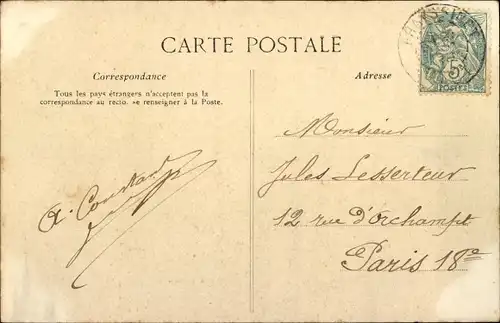 CARTE POSTALE
Correspondance
Tous les pays étrangers n'acceptent pas la
correspondance au recto. Se renseigner à la Poste.
A. Constant
Adresse
5
POSTES
Monsieur
Jules Lesserteur
12 rue d'Orchampt
Paris 18e